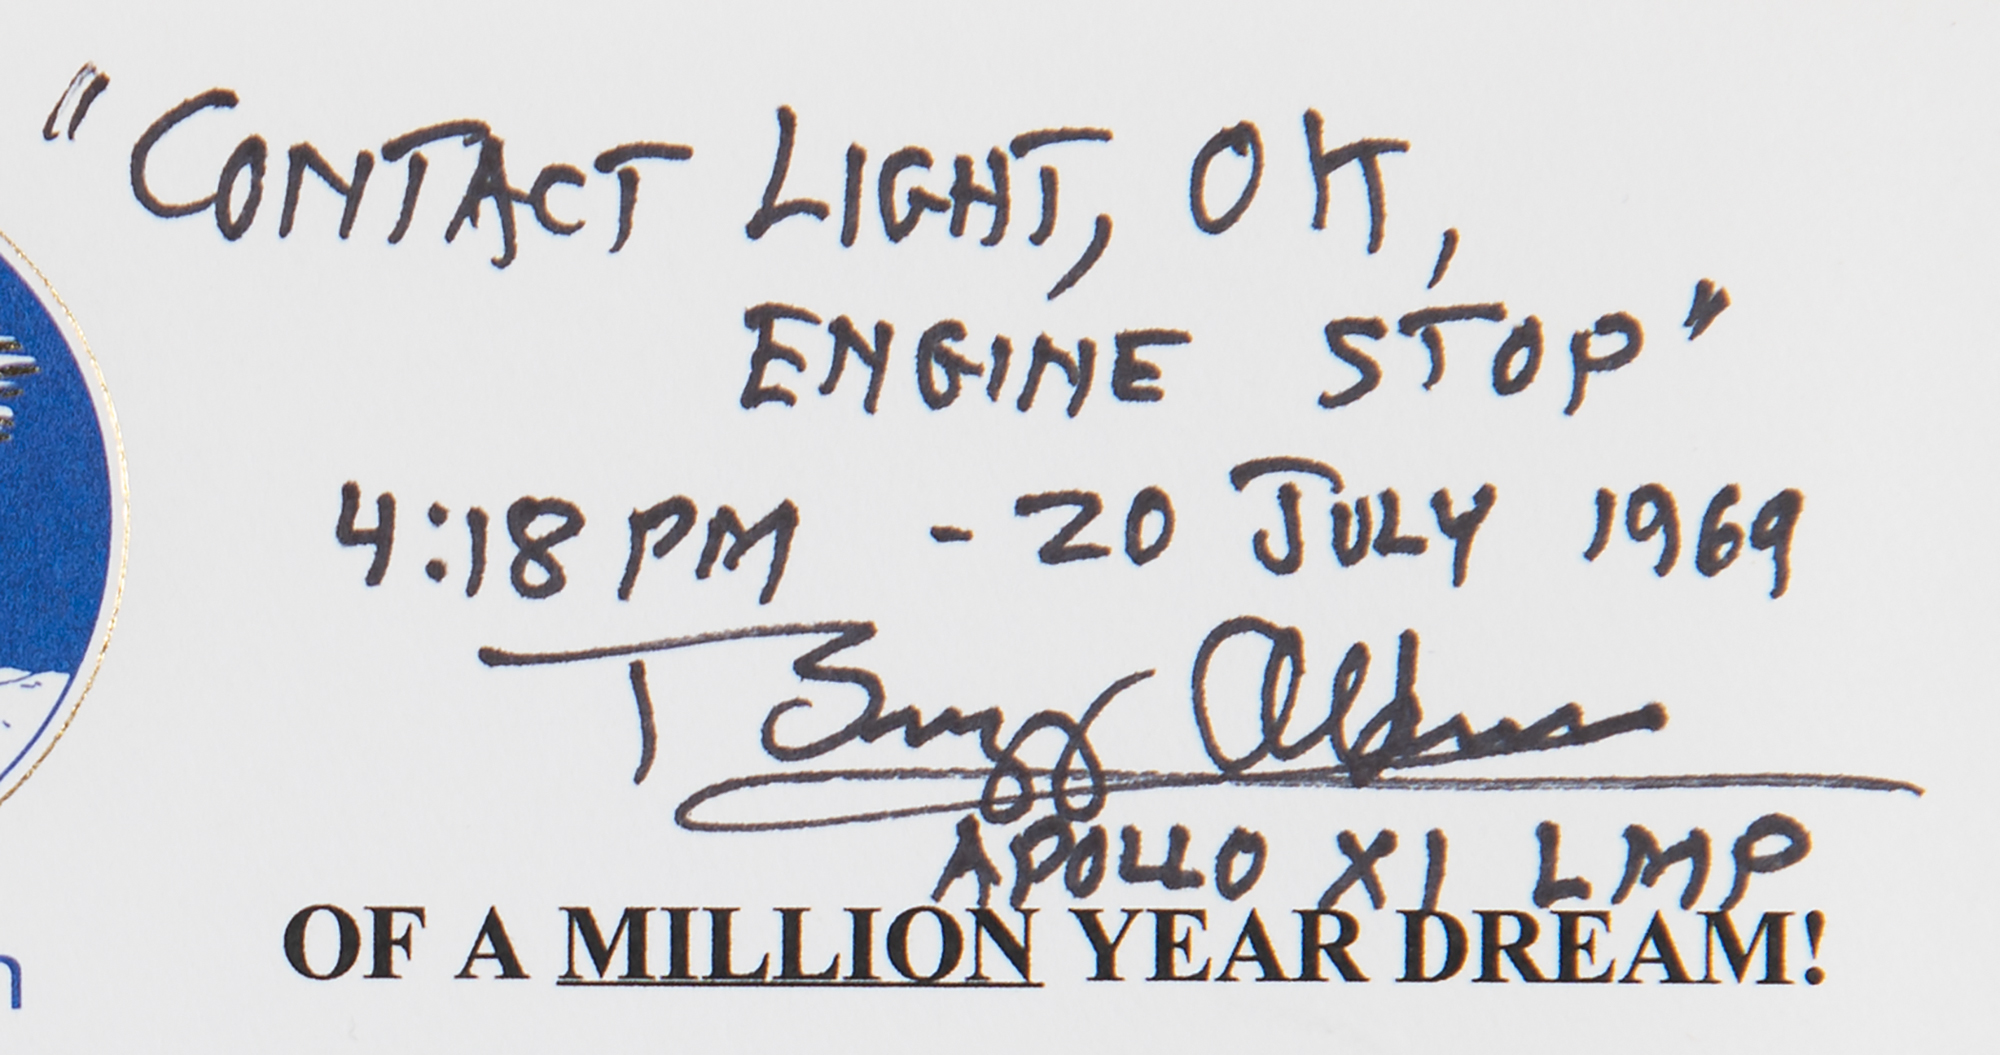 "CONTACT LIGHT, OK,
ENGINE STOP"
4:18 PM - 20 JULY 1969
Buzz Aldrin
APOLLO XI LMP
OF A MILLION YEAR DREAM!
n